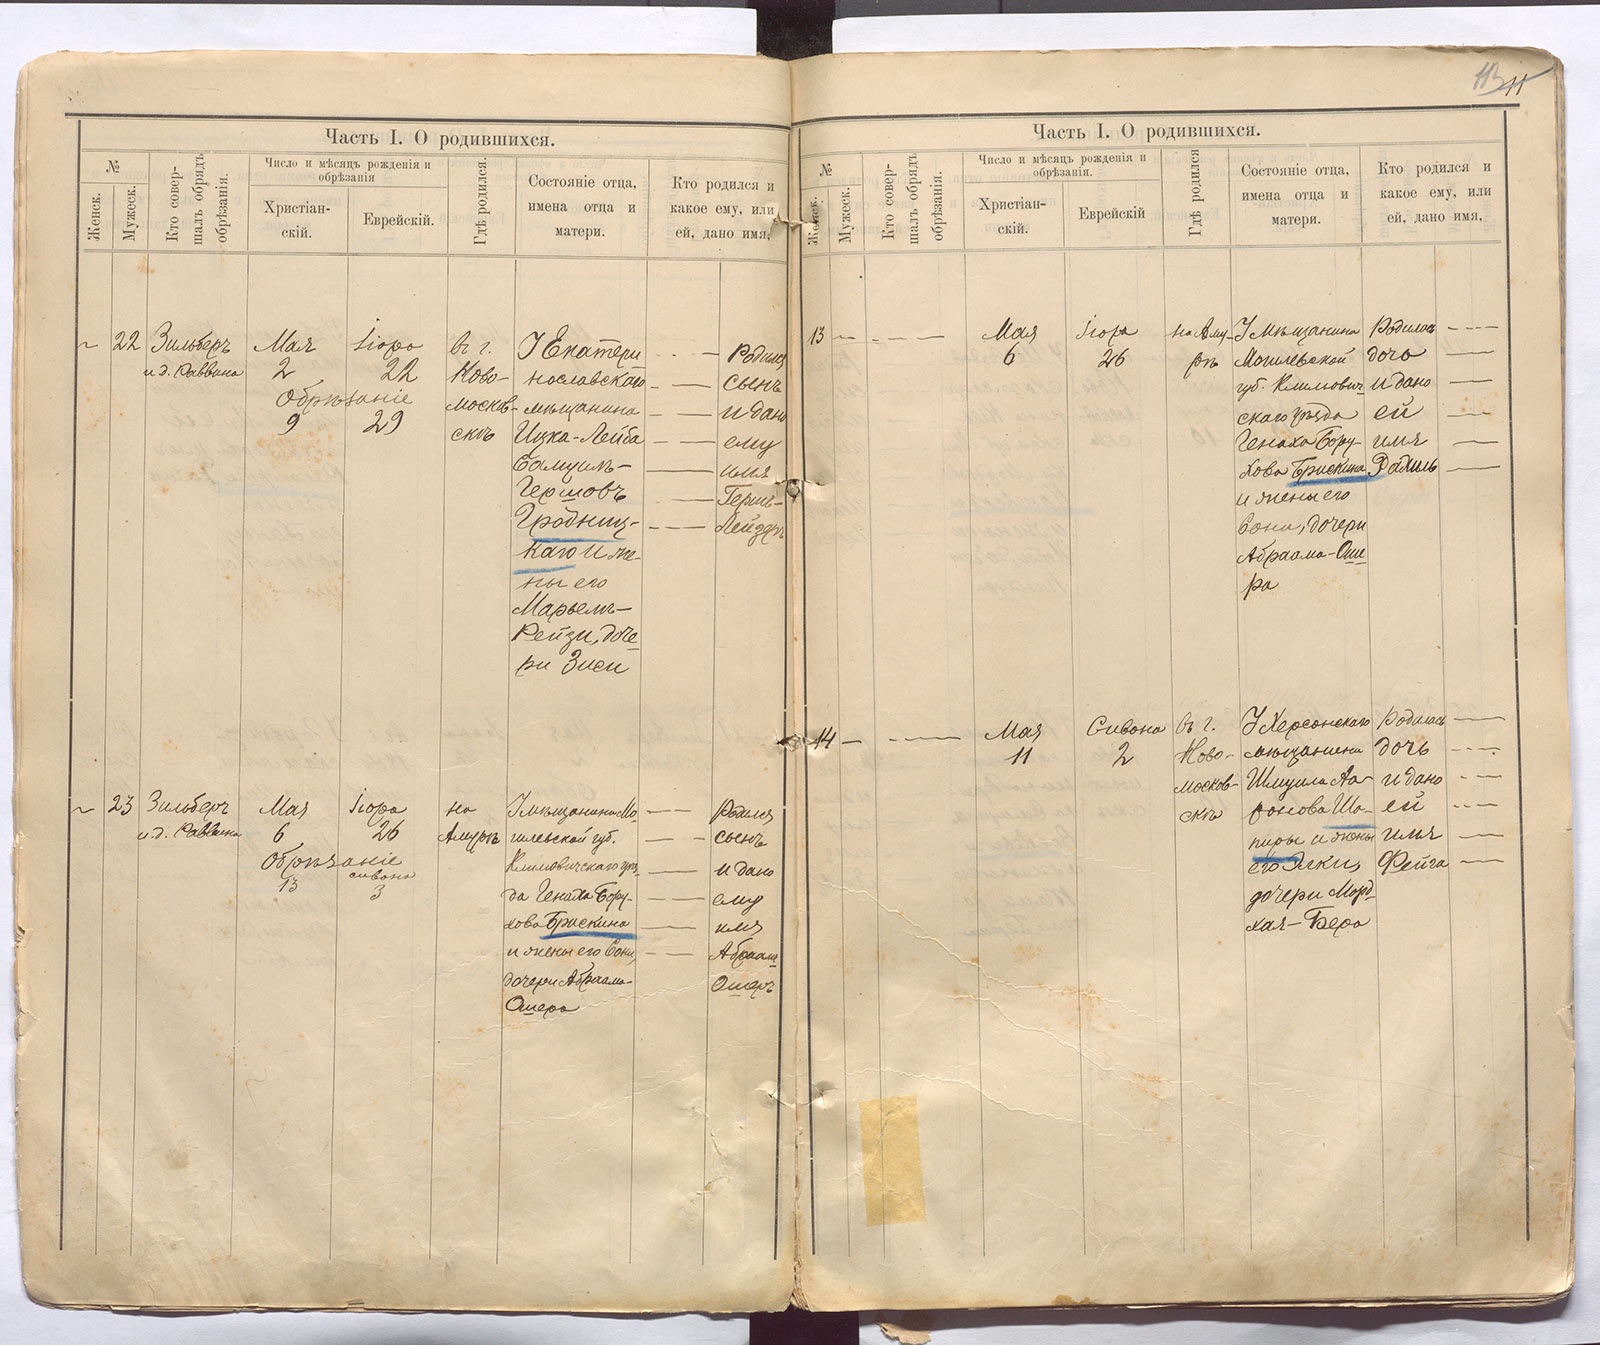 113 11
Часть I. О родившихся.
№
Женск.
Мужеск.
Кто совер-
шалъ обрядъ
обрѣзанія.
Число и мѣсяцъ рожденія и
обрѣзанія
Христіан-
скій.
Еврейскій.
Гдѣ родился.
Состояніе отца,
имена отца и
матери.
Кто родился и
какое ему, или
ей, дано имя.
22
Зильберъ
и д. Раввина
Мая
2
Іюра
22
Обрѣзаніе
9 29
въ г.
Ново-
москов-
скъ
У Екатери
нославскаго
мѣщанина
Ицка-Лейба
Самуилъ-
Гершовъ
Гродниц-
каго и же-
ны его
Марьемъ-
Рейзи, доче
ри Зиси
Родился
сынъ
и дано
ему
имя
Гершъ-
Лейзеръ
23
Зильберъ
и д. Раввина
Мая
6
Іюра
26
Обрѣзаніе
сивона
13 3
на
Амурѣ
У мѣщанина Мо
гилевской губ.
Климовичскаго уѣз-
да Генаха Бору-
хова Брискина
и жены его Сони,
дочери Абраама-
Ошера
Родился
сынъ
и дано
ему
имя
Абраамъ
Ошеръ
Часть I. О родившихся.
№
Женск.
Мужеск.
Кто совер-
шалъ обрядъ
обрѣзанія.
Число и мѣсяцъ рожденія и
обрѣзанія.
Христіан-
скій.
Еврейскій
Гдѣ родился
Состояніе отца,
имена отца и
матери.
Кто родился и
какое ему, или
ей, дано имя,
13
Мая
6
Іюра
26
на Аму-
рѣ
У мѣщанина
Могилевской
губ. Климович
скаго уѣзда
Генаха Бору-
хова Брискина
и жены его
Сони, дочери
Абраама-Оше
ра
Родилась
дочь
и дано
ей
имя
Рахиль
14
Мая
11
Сивона
2
въ г.
Ново-
москов-
скѣ
У Херсонскаго
мѣщанина
Шмуила Аа-
ронова Ша-
пиры и жены
его Элки,
дочери Морд
хая-Бера
Родилась
дочь
и дано
ей
имя
Фейга